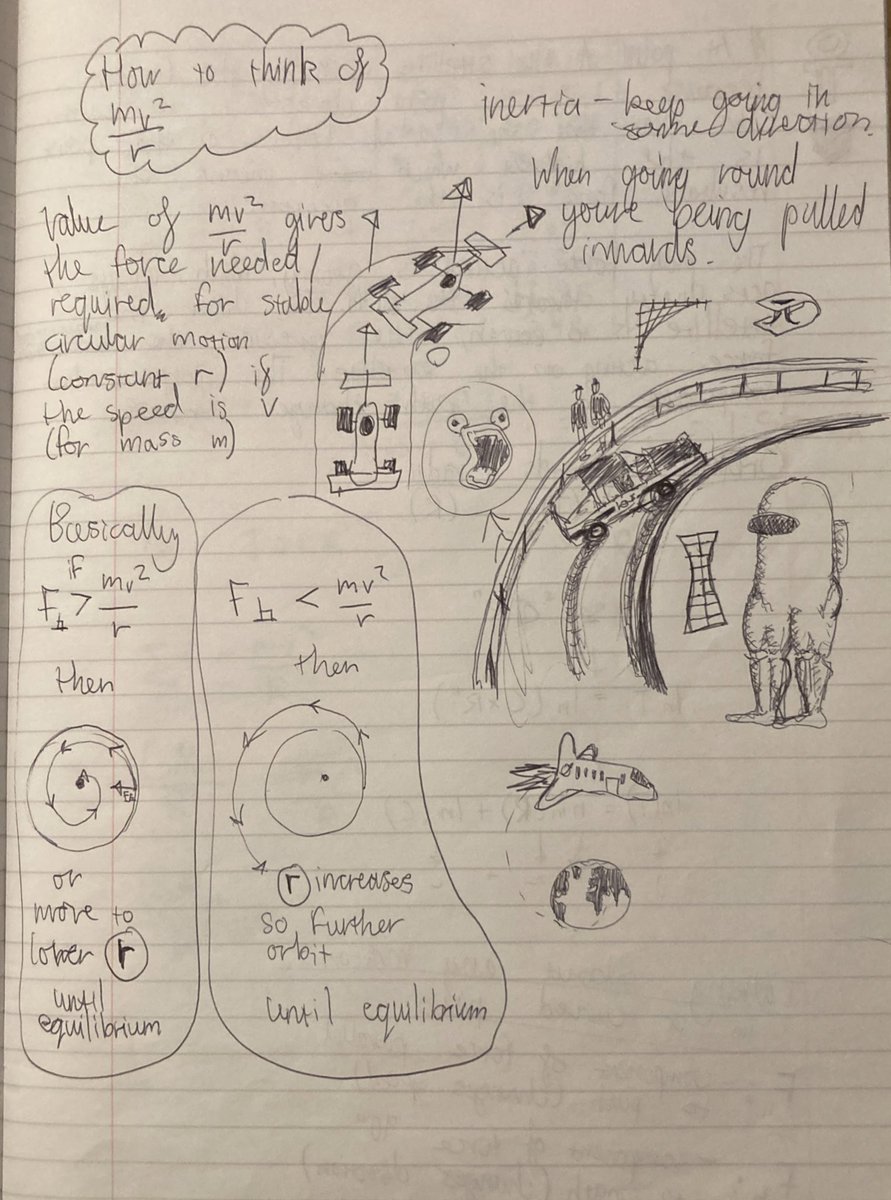 How to think of
mv²
r
inertia – keep going in
same direction.
When going round
you're being pulled
inwards.
Value of mv²/r gives
the force needed/
required, for stable
circular motion
(constant r) if
the speed is v
(for mass m)
Basically
if
F⊥ > mv²/r
then
F⊥
or
move to
lower r
until
equilibrium
F⊥ < mv²/r
then
r increases
so further
orbit
until equilibrium